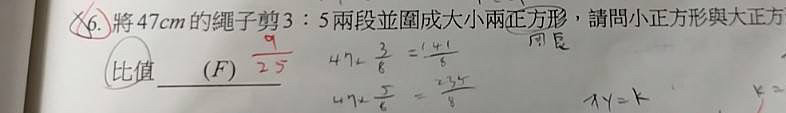 6. 將47cm的繩子剪3：5兩段並圍成大小兩正方形，請問小正方形與大正方
周長
比值 (F) 9/25
47× 3/8 = 141/8
47× 5/8 = 235/8
xy=k
k=